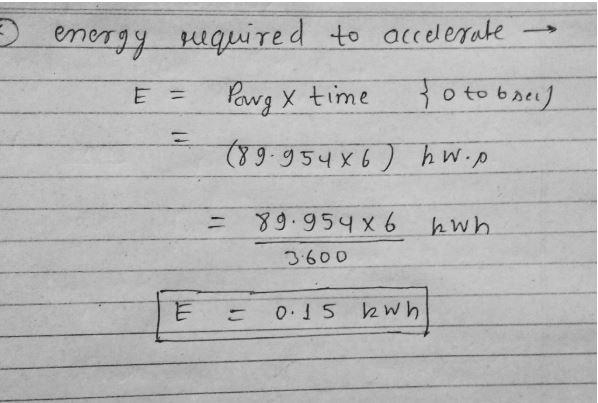 energy required to accelerate →
E = Pavg X time { 0 to 6 sec }
= (89.954 x 6) kw.s
= 89.954 x 6 kwh
3600
E = 0.15 kwh